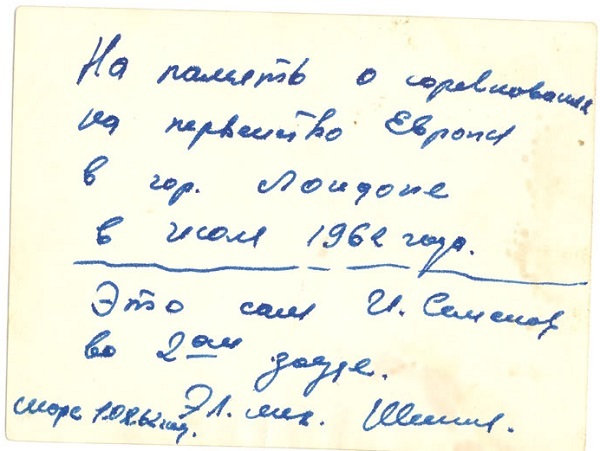 На память о соревнованиях
на первенство Европы
в гор. Лондоне
в июле 1962 года.
Это сам И. Семенов
во 2ом заезде.
Эл. мех.
море 10.8.62 год.